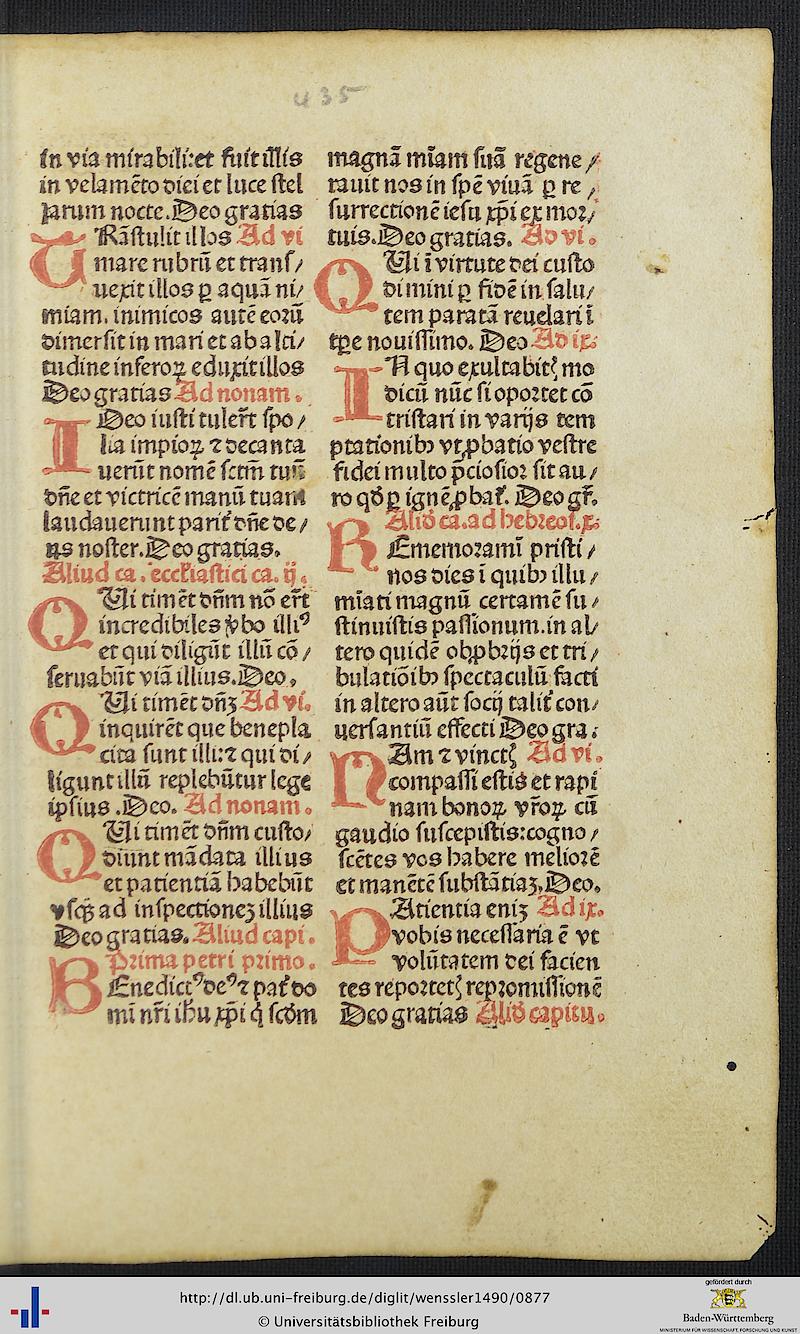 435
in via mirabili:et fuit illis
in velamēto diei et luce stel
larum nocte.Deo gratias
TRāstulit illos Ad vi
mare rubrū et trans/
uexit illos ꝑ aquā ni/
miam. inimicos autē eorū
dimersit in mari et ab alti/
tudine inferoꝝ eduxit illos
Deo gratias Ad nonam.
IDeo iusti tulert̄ spo/
lia impioꝝ ⁊ decanta
uerūt nomē sctm̄ tuū
dn̄e et victricē manū tuam
laudauerunt parit̄ dn̄e de/
us noster.Deo gratias.
Aliud ca. eccl̄iastici ca. ij.
QUi timēt dn̄m nō er̄t
incredibiles v̄bo illiꝰ
et qui diligūt illū cō/
seruabūt viā illius.Deo,
QUi timēt dn̄ꝫ Ad vi.
inquirēt que benepla
cita sunt illi:⁊ qui di/
ligunt illū replebūtur lege
ipsius .Deo. Ad nonam.
QUi timēt dn̄m custo/
diunt mādata illius
et patientiā habebūt
vsqꝫ ad inspectioneꝫ illius
Deo gratias. Aliud capi.
Prima petri primo.
BEnedictꝰ deꝰ ⁊ pat̄ do
mī nr̄i ih̄u xp̄i q̇ scd̄m
magnā mīam suā regene/
rauit nos in spē viuā ꝑ re/
surrectionē iesu xp̄i ex mor/
tuis.Deo gratias. Ad vi.
QUi ī virtute dei custo
dimini ꝑ fidē in salu/
tem paratā reuelari ī
tꝑe nouissimo. Deo Ad ix.
IN quo exultabitꝭ mo
dicū nūc si oportet cō
tristari in varijs tem
ptationibꝫ vt ꝓbatio vestre
fidei multo p̄ciosior sit au/
ro qd̄ ꝑ ignē ꝓbat̄. Deo gr̄.
Aliḋ ca. ad hebreos. x.
REmemoramī pristi/
nos dies ī quibꝫ illu/
mīati magnū certamē su/
stinuistis passionum.in al/
tero quidē obꝓbrijs et tri/
bulatiōibꝫ spectaculū facti
in altero aūt socij talit̄ con/
uersantiū effecti Deo gra.
NAm ⁊ vinctꝭ Ad vi.
compassi estis et rapi
nam bonoꝝ vr̄oꝝ cū
gaudio suscepistis:cogno/
scētes vos habere meliorē
et manētē substātiaꝫ,Deo.
PAtientia eniꝫ Ad ix.
vobis necessaria ē vt
volūtatem dei facien
tes reportetꝭ repromissionē
Deo gratias Aliḋ capitu.
http://dl.ub.uni-freiburg.de/diglit/wenssler1490/0877
© Universitätsbibliothek Freiburg
gefördert durch
Baden-Württemberg
MINISTERIUM FÜR WISSENSCHAFT, FORSCHUNG UND KUNST